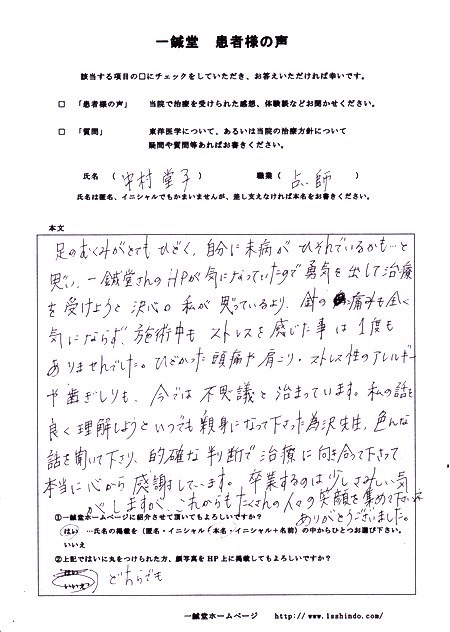 一鍼堂 患者様の声
該当する項目の□にチェックをしていただき、お答えいただければ幸いです。
□ 「患者様の声」 当院で治療を受けられた感想、体験談などお聞かせください。
□ 「質問」 東洋医学について、あるいは当院の治療方針について
疑問や質問等あればお書きください。
氏名 ( 中村 堂子 ) 職業 ( 占い師 )
氏名は匿名、イニシャルでもかまいませんが、差し支えなければ本名をお書きください。
本文
足のむくみがとてもひどく、自分に未病がひそんでいるかも…と
思い、一鍼堂さんのHPが気になっていたので勇気を出して治療
を受けようと決心。私が思っているより、針の痛みも全く
気にならず、施術中もストレスを感じた事は1度も
ありませんでした。ひどかった頭痛や肩こり・ストレス性のアレルギー
や歯ぎしりも、今では不思議と治まっています。私の話を
良く理解しようといつでも親身になって下さった為沢先生、色んな
話を聞いて下さり、的確な判断で治療に向き合って下さって
本当に心から感謝しています。卒業するのは少しさみしい気
がしますが、これからもたくさんの人々の笑顔を集めて下さい
ありがとうございました。
①一鍼堂ホームページに紹介させて頂いてもよろしいですか?
はい …氏名の掲載を(匿名・イニシャル・本名・イニシャル+名前)の中からひとつお選び下さい。
いいえ
②上記ではいに丸をつけられた方、顔写真をHP上に掲載してもよろしいですか?
はい
いいえ どちらでも
一鍼堂ホームページ http://www.1sshindo.com/